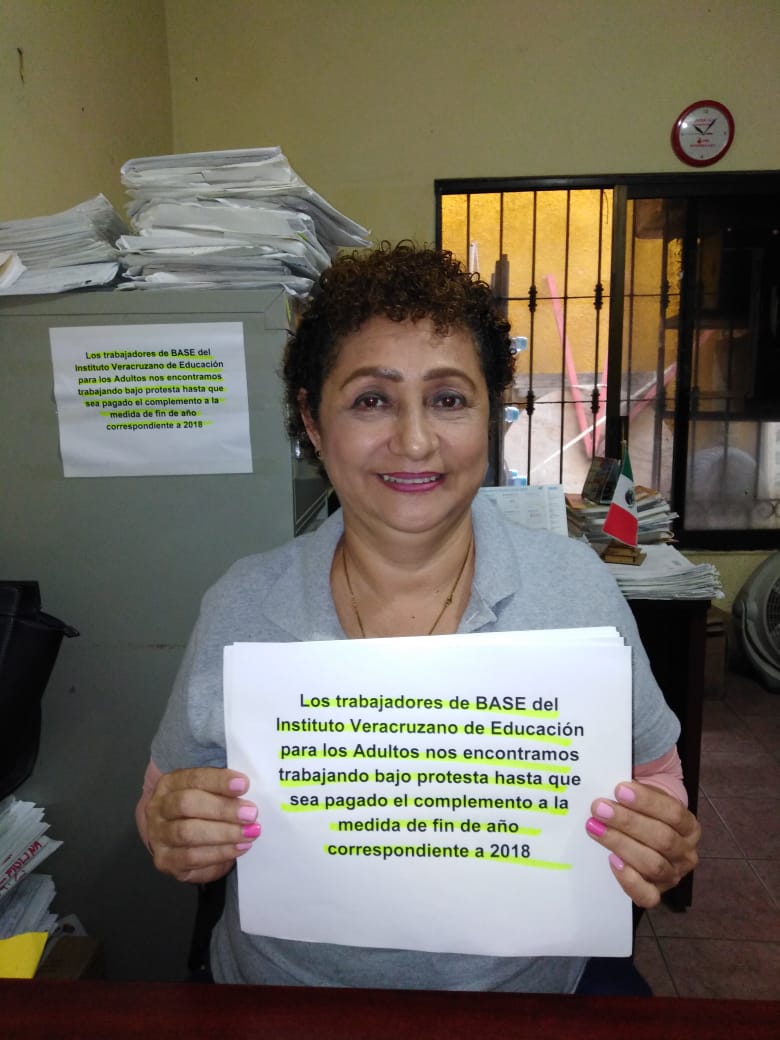 Los trabajadores de BASE del
Instituto Veracruzano de Educación
para los Adultos nos encontramos
trabajando bajo protesta hasta que
sea pagado el complemento a la
medida de fin de año
correspondiente a 2018
Los trabajadores de BASE del
Instituto Veracruzano de Educación
para los Adultos nos encontramos
trabajando bajo protesta hasta que
sea pagado el complemento a la
medida de fin de año
correspondiente a 2018